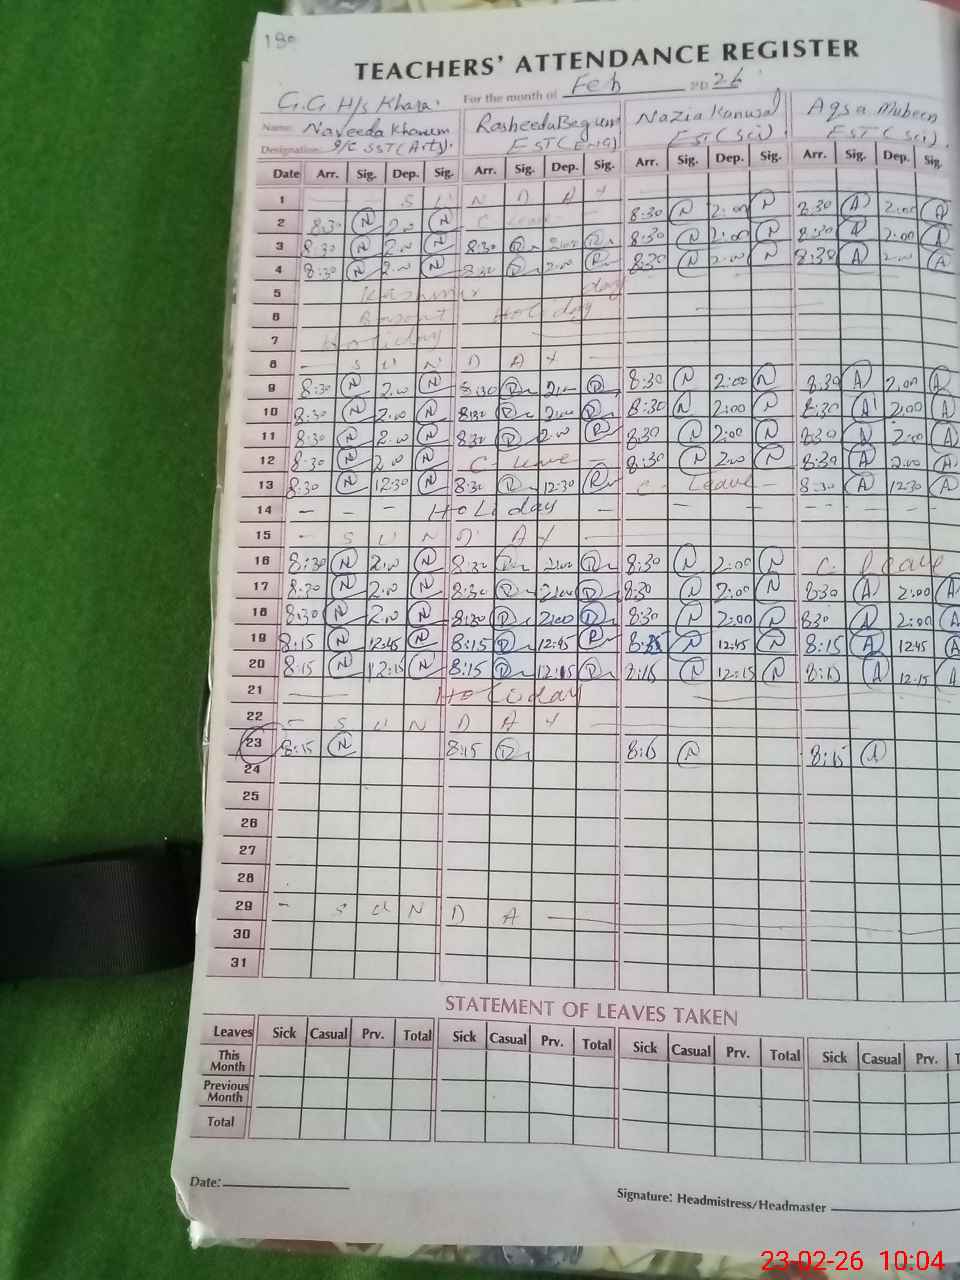 190
TEACHERS' ATTENDANCE REGISTER
For the month of Feb 2026
G.G H/s Khara.
Name: Naveeda Khanum Rasheeda Begum Nazia Kanwal Aqsa Mubeen
Designation: I/C SST (Arts). EST (ENG) EST (Sci). EST (Sci).
Date Arr. Sig. Dep. Sig. Arr. Sig. Dep. Sig. Arr. Sig. Dep. Sig. Arr. Sig. Dep. Sig.
1 — S U N D A Y
2 8:30 N 2.00 N C. Leave — 8:30 N 2:00 N 8:30 A 2:00 A
3 8:30 N 2.00 N 8:30 R 2:00 R 8:30 N 2:00 N 8:30 A 2:00 A
4 8:30 N 2.00 N 8:30 R 2.00 R 8:30 N 2.00 N 8:30 A 2.00 A
5 Kashmir day
6 Basant Holiday
7 Holiday
8 — S U N D A Y —
9 8:30 N 2.00 N 8:30 R 2:00 R 8:30 N 2:00 N 8:30 A 2:00 A
10 8:30 N 2.00 N 8:30 R 2:00 R 8:30 N 2:00 N 8:30 A 2:00 A
11 8:30 N 2.00 N 8:30 R 2.00 R 8:30 N 2:00 N 8:30 A 2:00 A
12 8:30 N 2.00 N C. Leave — 8:30 N 2.00 N 8:30 A 2.00 A
13 8:30 N 12:30 N 8:30 R 12:30 R C. Leave — 8:30 A 12:30 A
14 — — — Holiday — — — — — — —
15 — S U N D A Y —
16 8:30 N 2.00 N 8:30 R 2:00 R 8:30 N 2:00 N C. Leave
17 8:30 N 2.00 N 8:30 R 2:00 R 8:30 N 2:00 N 8:30 A 2:00 A
18 8:30 N 2.00 N 8:30 R 2:00 R 8:30 N 2:00 N 8:30 A 2:00 A
19 8:15 N 12:45 N 8:15 R 12:45 R N 12:45 N 8:15 A 12:45 A
20 8:15 N 12:15 N 8:15 R 12:15 R 8:15 N 12:15 N 8:15 A 12:15 A
21 — Holiday
22 — S U N D A Y —
23 8:15 N 8:15 R 8:15 N 8:15 A
24
25
26
27
28
29 — S U N D A —
30
31
STATEMENT OF LEAVES TAKEN
Leaves Sick Casual Prv. Total Sick Casual Prv. Total Sick Casual Prv. Total Sick Casual Prv.
This Month
Previous Month
Total
Date:
Signature: Headmistress/Headmaster
23-02-26 10:04